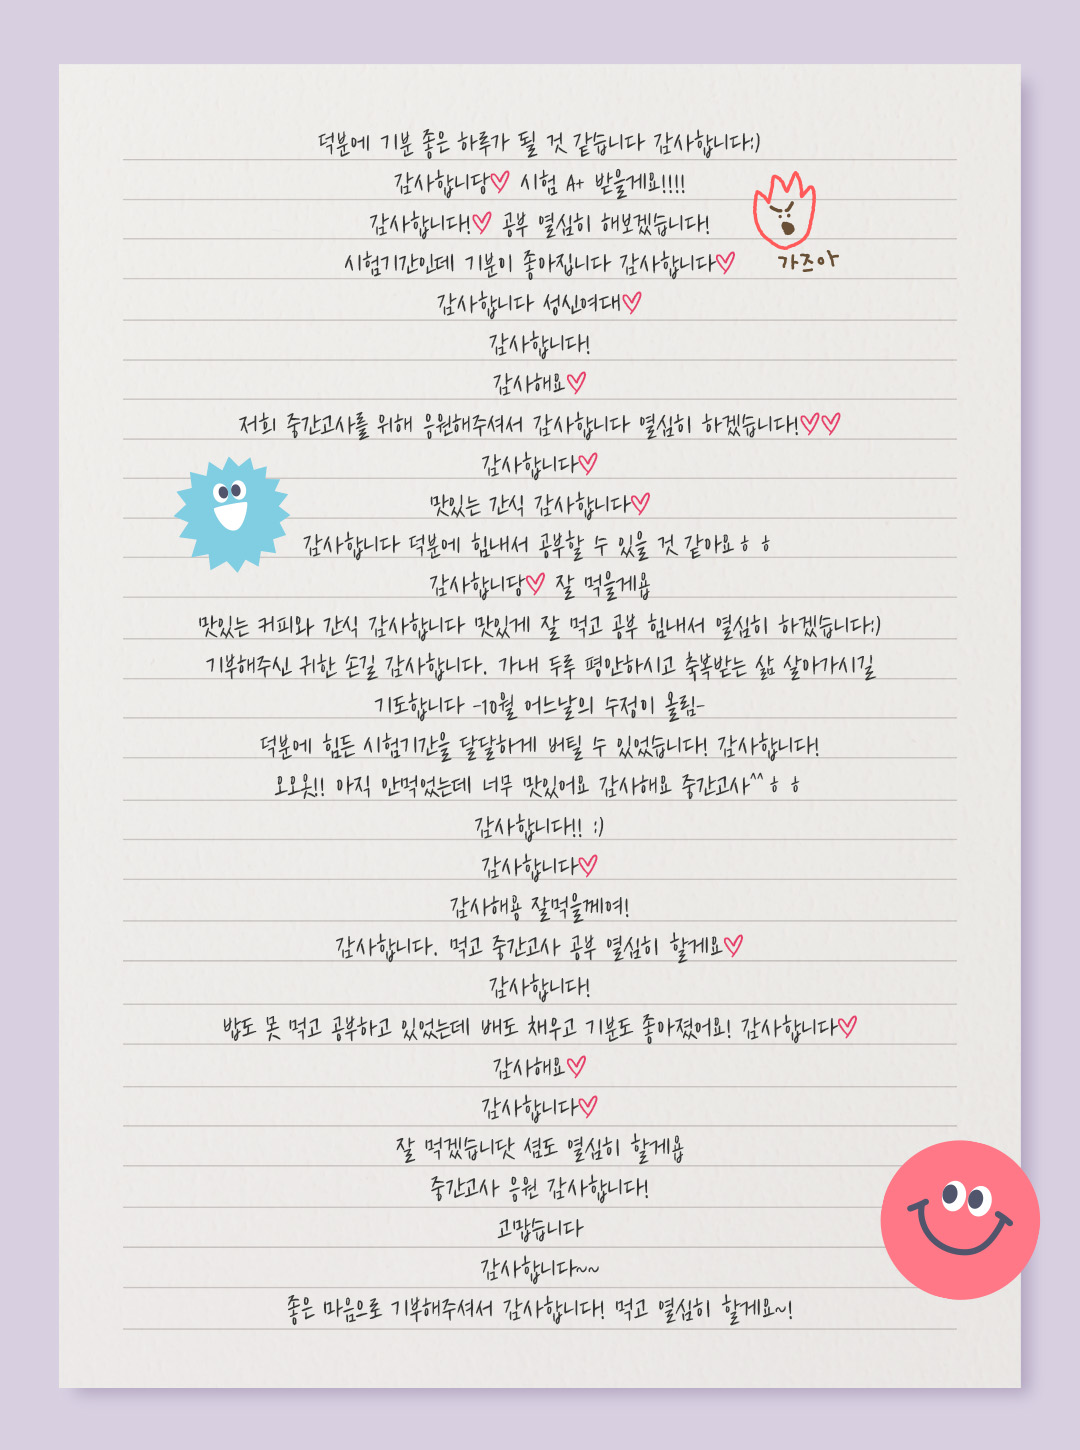 덕분에 기분 좋은 하루가 될 것 같습니다 감사합니다:)
감사합니당♡ 시험 A+ 받을게요!!!!
감사합니다!♡ 공부 열심히 해보겠습니다!
시험기간인데 기분이 좋아집니다 감사합니다♡
가즈아
감사합니다 성신여대♡
감사합니다!
감사해요♡
저희 중간고사를 위해 응원해주셔서 감사합니다 열심히 하겠습니다!♡♡
감사합니다♡
맛있는 간식 감사합니다♡
감사합니다 덕분에 힘내서 공부할 수 있을 것 같아요ㅎㅎ
감사합니당♡ 잘 먹을게욥
맛있는 커피와 간식 감사합니다 맛있게 잘 먹고 공부 힘내서 열심히 하겠습니다:)
기부해주신 귀한 손길 감사합니다. 가내 두루 평안하시고 축복받는 삶 살아가시길
기도합니다 -10월 어느날의 수정이 올림-
덕분에 힘든 시험기간을 달달하게 버틸 수 있었습니다! 감사합니다!
오오옷!! 아직 안먹었는데 너무 맛있어요 감사해요 중간고사^^ㅎㅎ
감사합니다!! :)
감사합니다♡
감사해용 잘먹을께여!
감사합니다. 먹고 중간고사 공부 열심히 할게요♡
감사합니다!
밥도 못 먹고 공부하고 있었는데 배도 채우고 기분도 좋아졌어요! 감사합니다♡
감사해요♡
감사합니다♡
잘 먹겠습니닷 셤도 열심히 할게욥
중간고사 응원 감사합니다!
고맙습니다
감사합니다~~
좋은 마음으로 기부해주셔서 감사합니다! 먹고 열심히 할게요~!